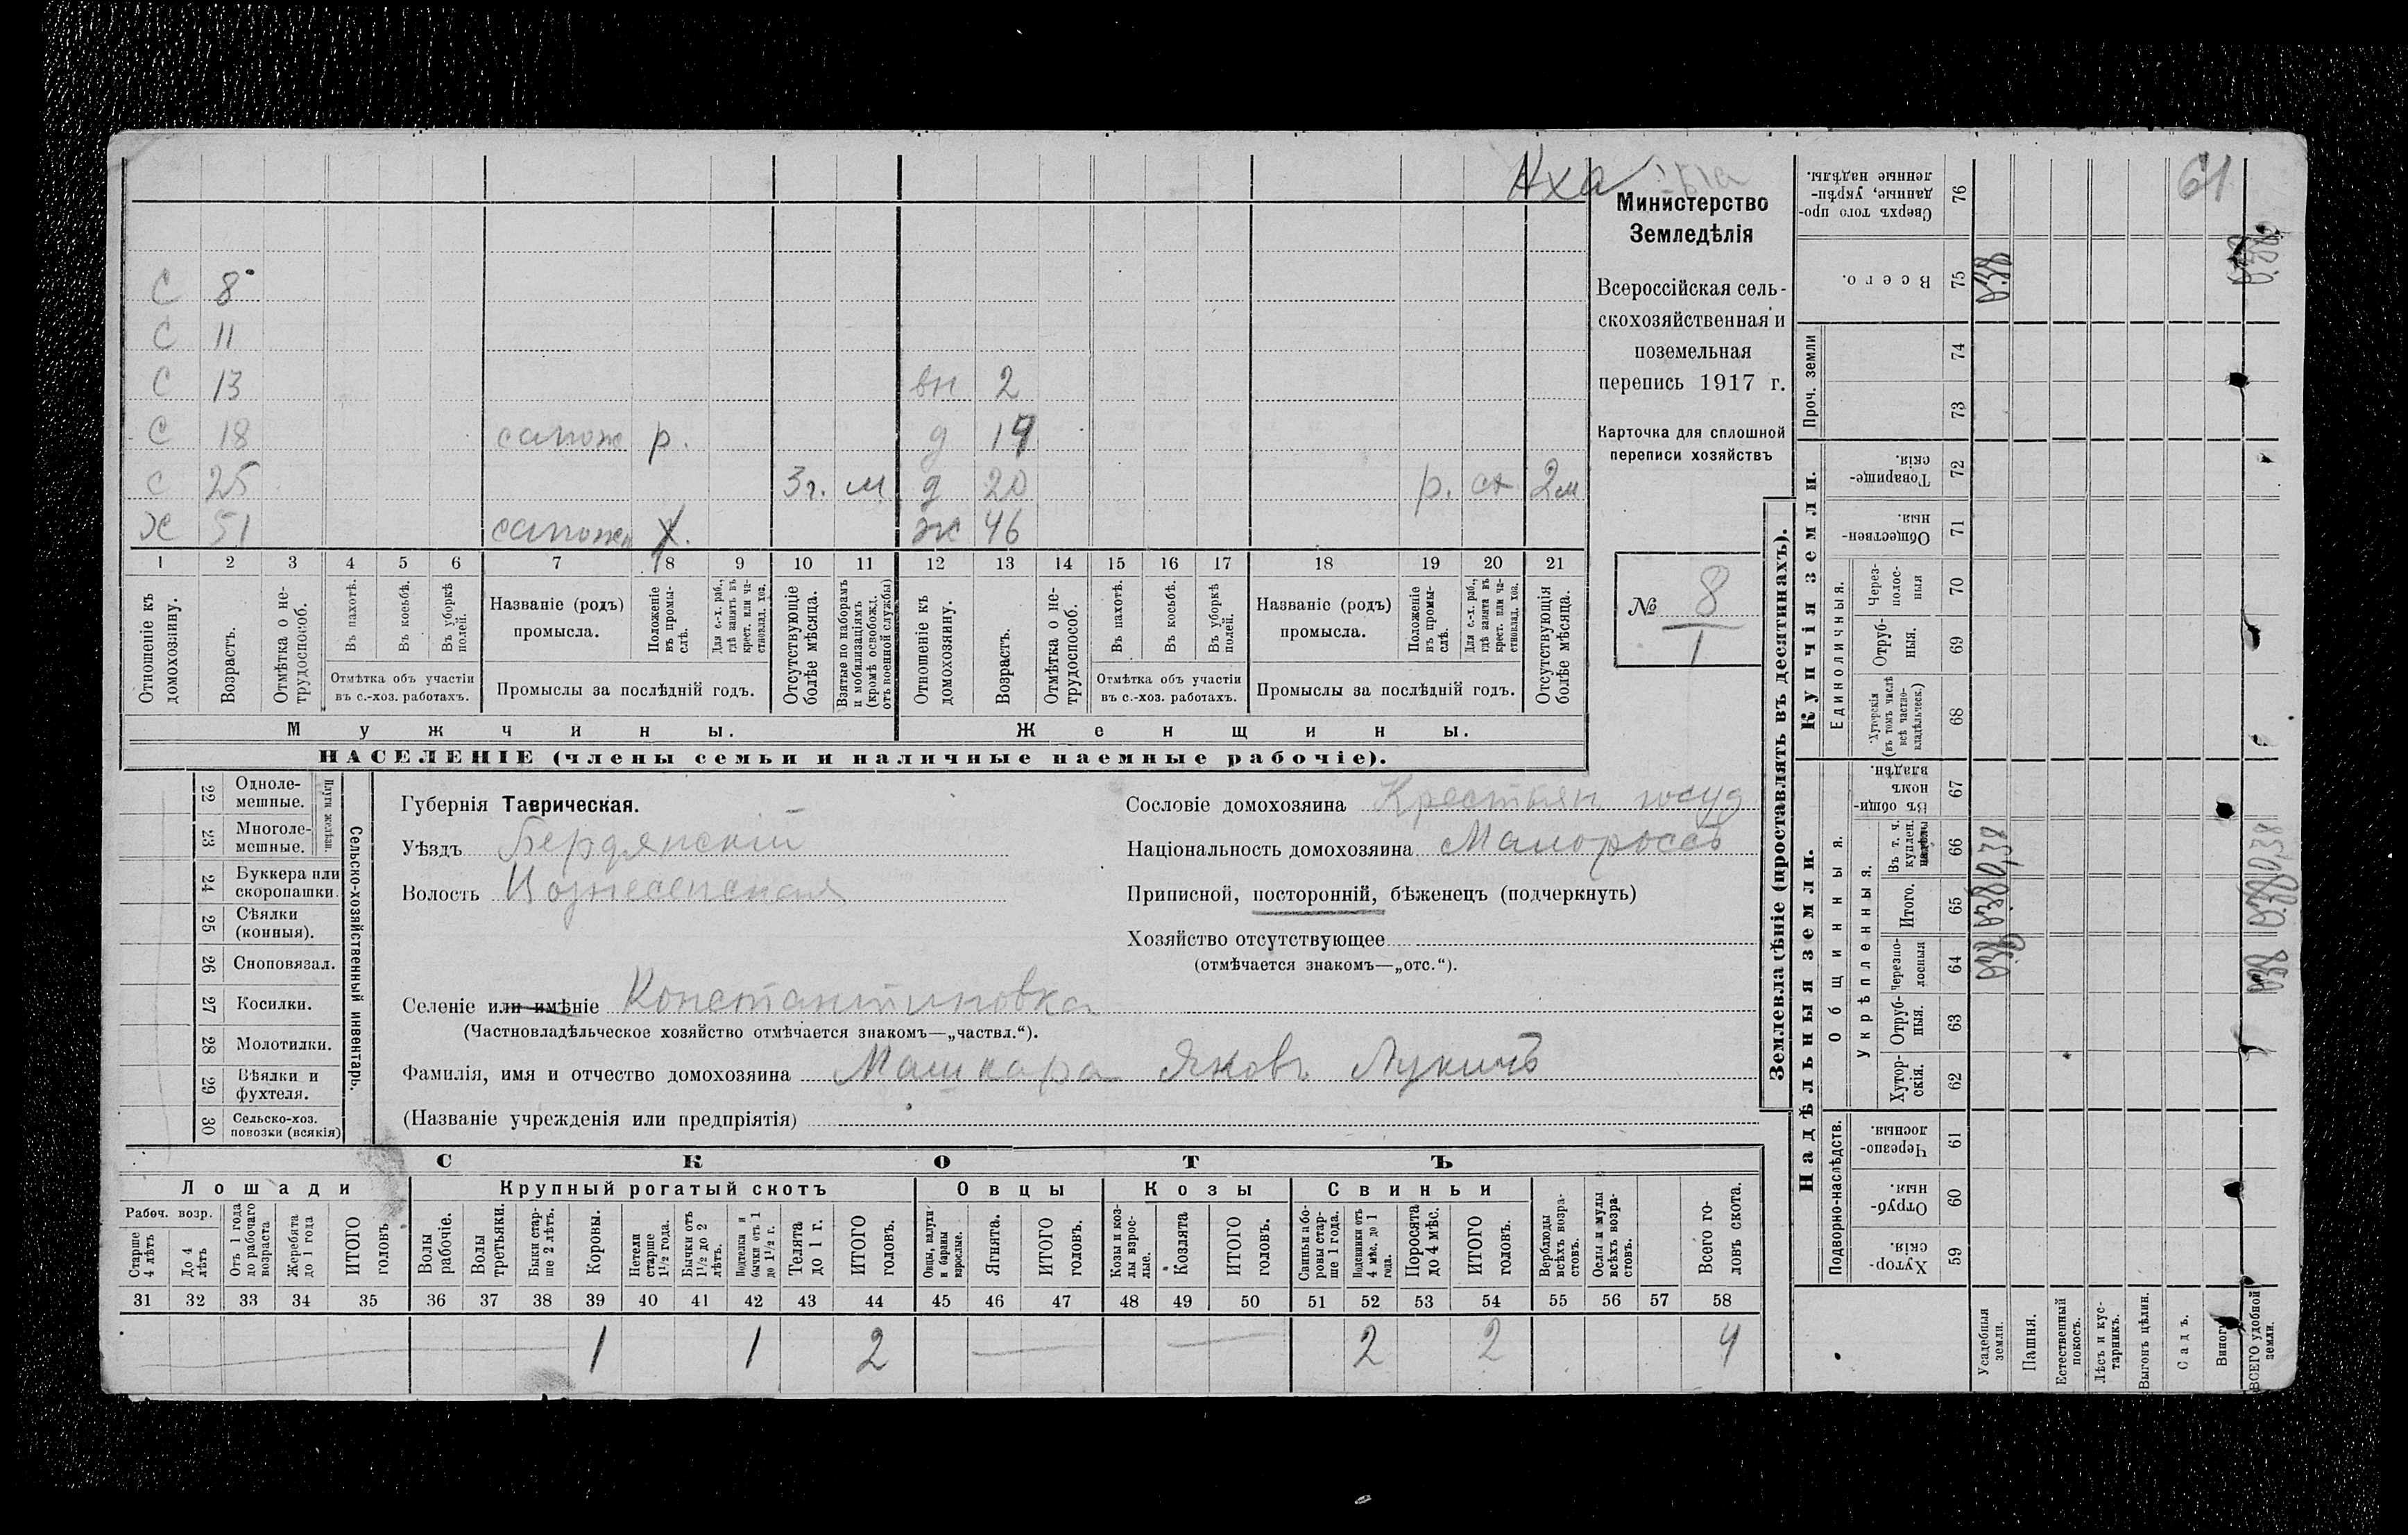 Нха
61
Министерство
Земледѣлія
Всероссійская сель-
скохозяйственная и
поземельная
перепись 1917 г.
Карточка для сплошной
переписи хозяйствъ
№ 8
1
С 8
С 11
С 13 вн 2
С 18 сапож р. д 14
С 25 3г. м д 20 р. сх 2м
Х 51 сапожн х. ж 46
1 2 3 4 5 6 7 8 9 10 11 12 13 14 15 16 17 18 19 20 21
Отношеніе къ домохозяину.
Возрастъ.
Отмѣтка о не-трудоспособ.
Въ пахотѣ.
Въ косьбѣ.
Въ уборкѣ полей.
Отмѣтка объ участіи
въ с.-хоз. работахъ.
Названіе (родъ)
промысла.
Положеніе въ промы-слѣ.
Для с.-х. раб., гдѣ занятъ въ крест. или ча-стновлад. хоз.
Промыслы за послѣдній годъ.
Отсутствующіе болѣе мѣсяца.
Взятые по наборамъ и мобилизаціямъ (кромѣ освобожд. отъ военной службы)
Отношеніе къ домохозяину.
Возрастъ.
Отмѣтка о не-трудоспособ.
Въ пахотѣ.
Въ косьбѣ.
Въ уборкѣ полей.
Отмѣтка объ участіи
въ с.-хоз. работахъ.
Названіе (родъ)
промысла.
Положеніе въ промы-слѣ.
Для с.-х. раб., гдѣ занята въ крест. или ча-стновлад. хоз.
Промыслы за послѣдній годъ.
Отсутствующія болѣе мѣсяца.
Мужчины. Женщины.
НАСЕЛЕНІЕ (члены семьи и наличные наемные рабочіе).
Сельско-хозяйственный инвентарь.
Плуги желѣзн.
22 Одноле-мешные.
23 Многоле-мешные.
24 Буккера или скоропашки.
25 Сѣялки (конныя).
26 Сноповязал.
27 Косилки.
28 Молотилки.
29 Вѣялки и фухтеля.
30 Сельско-хоз. повозки (всякія)
Губернія Таврическая.
Уѣздъ Бердянскій
Волость Вознесенская
Селеніе или имѣніе Константиновка
(Частновладѣльческое хозяйство отмѣчается знакомъ—„частвл.“).
Фамилія, имя и отчество домохозяина Машкара Яковъ Лукичъ
(Названіе учрежденія или предпріятія)
Сословіе домохозяина Крестьян госуд
Національность домохозяина Малороссъ
Приписной, посторонній, бѣженецъ (подчеркнуть)
Хозяйство отсутствующее
(отмѣчается знакомъ—„отс.“).
СКОТЪ
Лошади Крупный рогатый скотъ Овцы Козы Свиньи
Рабоч. возр.
Старше 4 лѣтъ
До 4 лѣтъ
Отъ 1 года до рабочаго возраста
Жеребята до 1 года
ИТОГО головъ
Волы рабочіе.
Волы третьяки.
Быки стар-ше 2 лѣтъ.
Коровы.
Нетели старше 1½ года.
Бычки отъ 1½ до 2 лѣтъ.
Подтелки и бычки отъ 1 до 1½ г.
Телята до 1 г.
ИТОГО головъ.
Овцы, валухи и бараны взрослые.
Ягнята.
ИТОГО головъ.
Козы и коз-лы взрос-лые.
Козлята
ИТОГО головъ.
Свиньи и бо-ровы стар-ше 1 года.
Подсвинки отъ 4 мѣс. до 1 года.
Поросята до 4 мѣс.
ИТОГО головъ.
Верблюды всѣхъ возра-стовъ.
Ослы и мулы всѣхъ возра-стовъ.
Всего го-ловъ скота.
31 32 33 34 35 36 37 38 39 40 41 42 43 44 45 46 47 48 49 50 51 52 53 54 55 56 57 58
1 1 2 2 2 4
Землевладѣніе (проставлять въ десятинахъ).
Надѣльныя земли. Купчія земли. Проч. земли
Подворно-наслѣдств.
Общинныя.
Укрѣпленныя.
Единоличныя.
Хутор-скія. 59
Отруб-ныя. 60
Черезпо-лосныя. 61
Хутор-скія. 62
Отруб-ныя. 63
Черезпо-лосныя 64
Итого. 65
Въ т. ч. куплен. надѣлы 66
Въ общи-номъ владѣн. 67
Хуторскія (въ томъ числѣ всѣ частно-владѣльческ.) 68
Отруб-ныя. 69
Через-полос-ныя 70
Обществен-ныя. 71
Товарище-скія. 72
73
74
Всего. 75
Сверхъ того про-данные, укрѣп-ленные надѣлы. 76
Усадебныя земли.
Пашня.
Естественный покосъ.
Лѣсъ и кус-тарникъ.
Выгонъ цѣлин.
Садъ.
Виногр
ВСЕГО удобной земли.